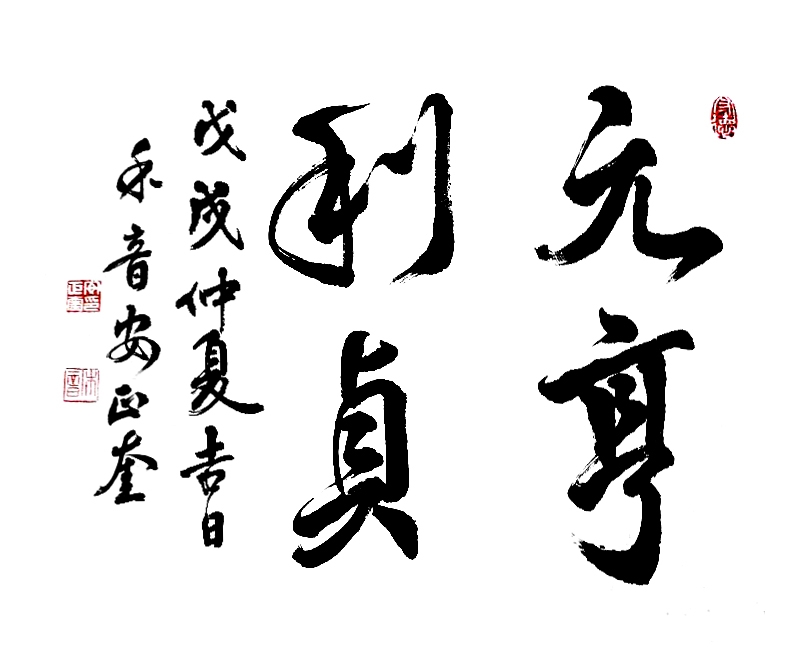 元亨
利貞
戊戌仲夏吉日
禾音安正奎